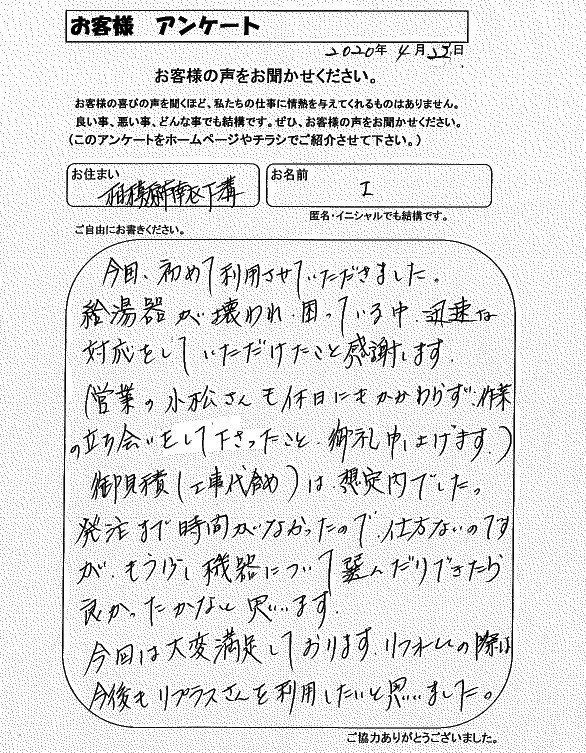 お客様 アンケート
2020年 4月29日
お客様の声をお聞かせください。
お客様の喜びの声を聞くほど、私たちの仕事に情熱を与えてくれるものはありません。
良い事、悪い事、どんな事でも結構です。ぜひ、お客様の声をお聞かせください。
(このアンケートをホームページやチラシでご紹介させて下さい。)
お住まい
相模原市南区下溝
お名前
I
匿名・イニシャルでも結構です。
ご自由にお書きください。
今回、初めて利用させていただきました。
給湯器が壊われ、困っている中、迅速な
対応をしていただけたこと感謝します。
(営業の小松さんも休日にもかかわらず、作業
の立ち会いをして下さったこと、御礼申し上げます。)
御見積(工事代含め)は、想定内でした。
発注まで時間がなかったので、仕方ないのです
が、もう少し機器について選んだりできたら
良かったかなと思います。
今回は大変満足しております。リフォームの際は
今後もリプラスさんを利用したいと思いました。
ご協力ありがとうございました。